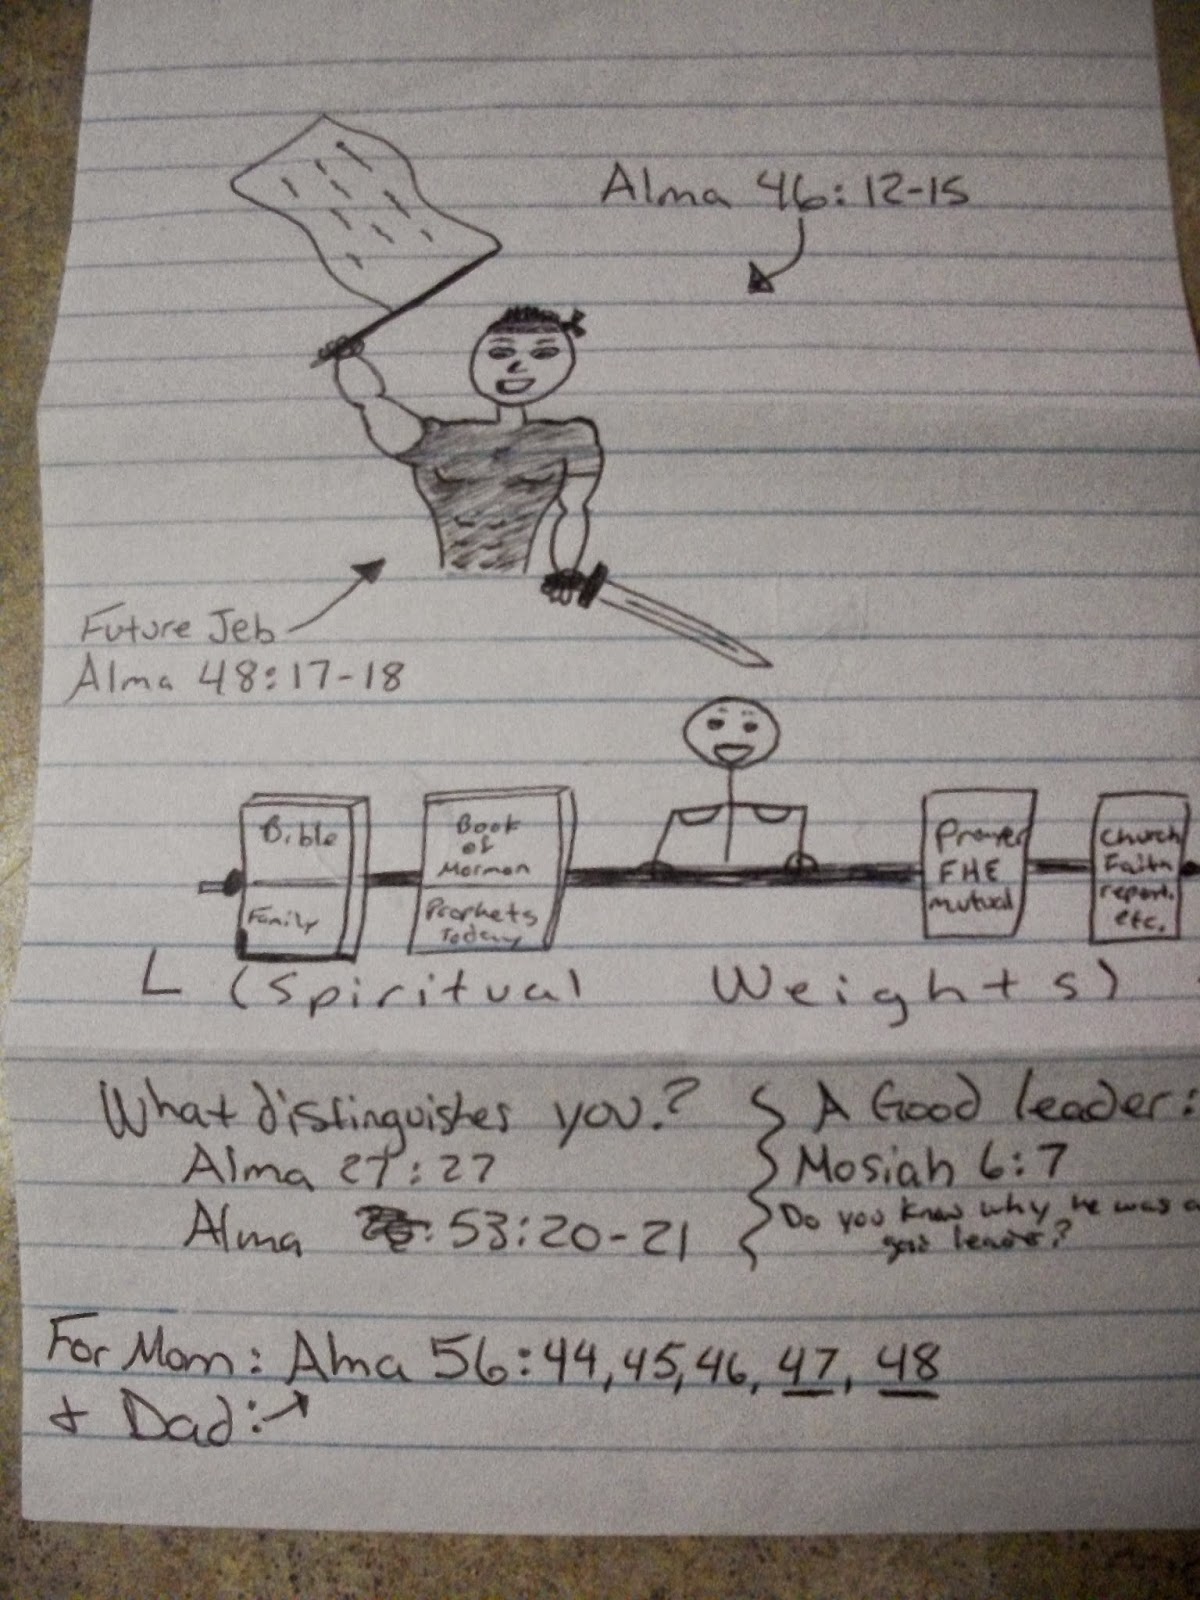 Alma 46:12-15
Future Jeb
Alma 48:17-18
Bible
Family
Book
of
Mormon
Prophets
Today
Prayer
FHE
mutual
Church
Faith
report.
etc.
(Spiritual Weights)
What distinguishes you?
Alma 27:27
Alma 53:20-21
A Good leader:
Mosiah 6:7
Do you know why he was a
good leader?
For Mom: Alma 56:44,45,46, 47, 48
+ Dad: